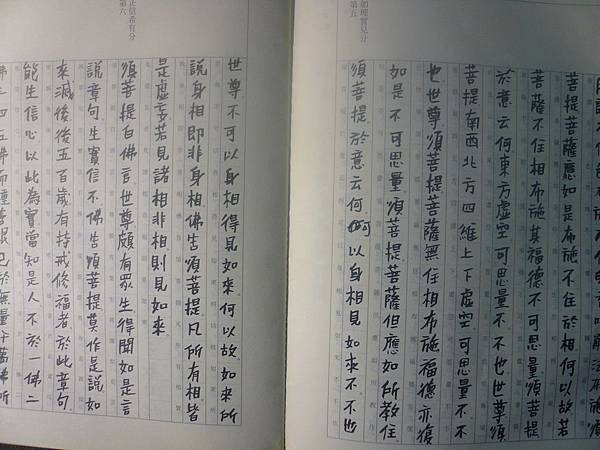 菩提菩薩應如是布施不住於相何以故若
菩薩不住相布施其福德不可思量須菩提
於意云何東方虛空可思量不不也世尊須
菩提南西北方四維上下虛空可思量不不
也世尊須菩提菩薩無住相布施福德亦復
如是不可思量須菩提菩薩但應如所教住
如理實見分
第五
須菩提於意云何可以身相見如來不不也
世尊不可以身相得見如來何以故如來所
說身相即非身相佛告須菩提凡所有相皆
是虛妄若見諸相非相則見如來
正信希有分
第六
須菩提白佛言世尊頗有眾生得聞如是言
說章句生實信不佛告須菩提莫作是說如
來滅後後五百歲有持戒修福者於此章句
能生信心以此為實當知是人不於一佛二
佛三四五佛而種善根已於無量千萬佛所